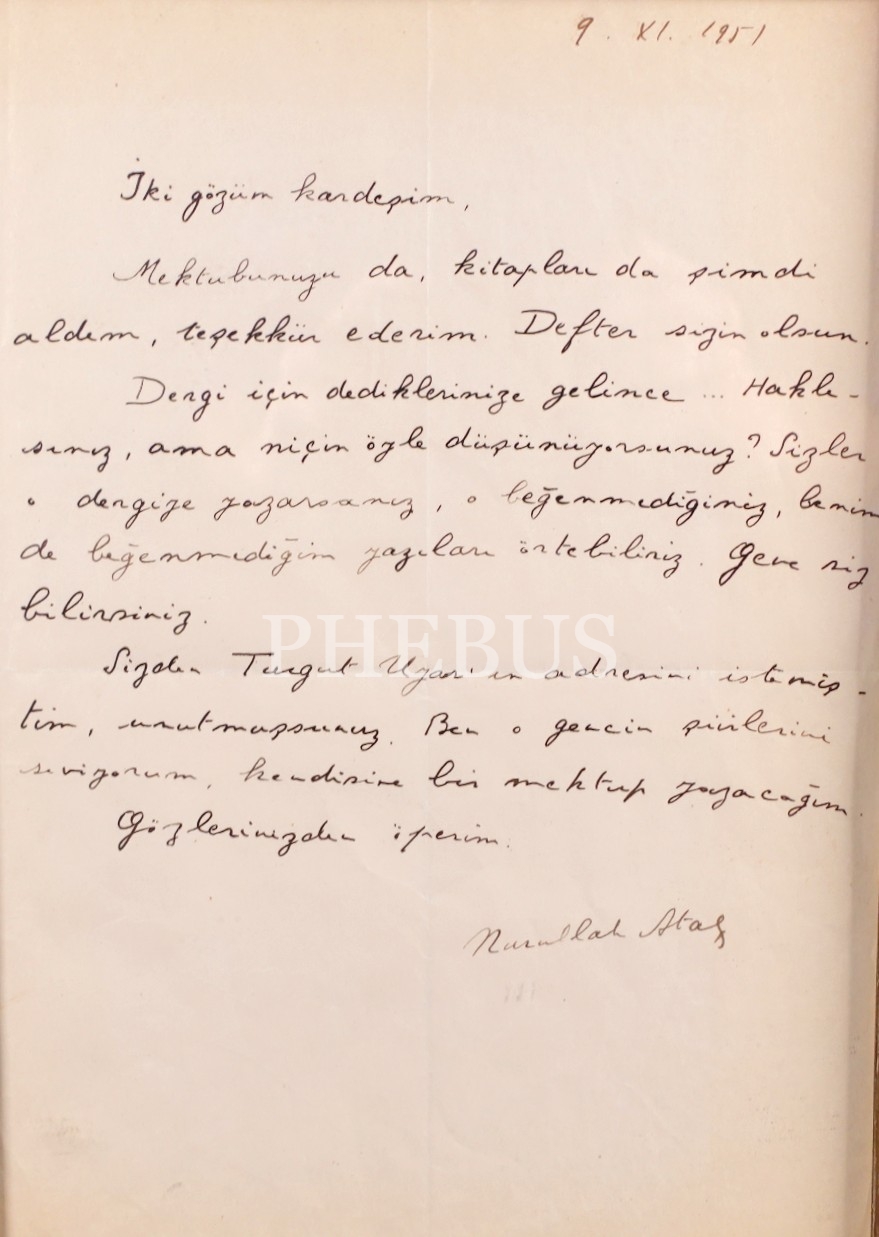 9. XI. 1951
İki gözüm kardeşim,
Mektubunuzu da, kitapları da şimdi
aldım, teşekkür ederim. Defter sizin olsun.
Dergi için dediklerinize gelince ... Haklı-
sınız, ama niçin öyle düşünüyorsunuz? Sizler
o dergiye yazarsanız, o beğenmediğiniz, benim
de beğenmediğim yazıları örtebiliriz. Gene siz
bilirsiniz.
PHEBUS
Sizden Turgut Uyar'ın adresini istemiş-
tim, unutmuşsunuz. Ben o gencin şiirlerini
seviyorum, kendisine bir mektup yazacağım.
Gözlerinizden öperim.
Nurullah Ataç